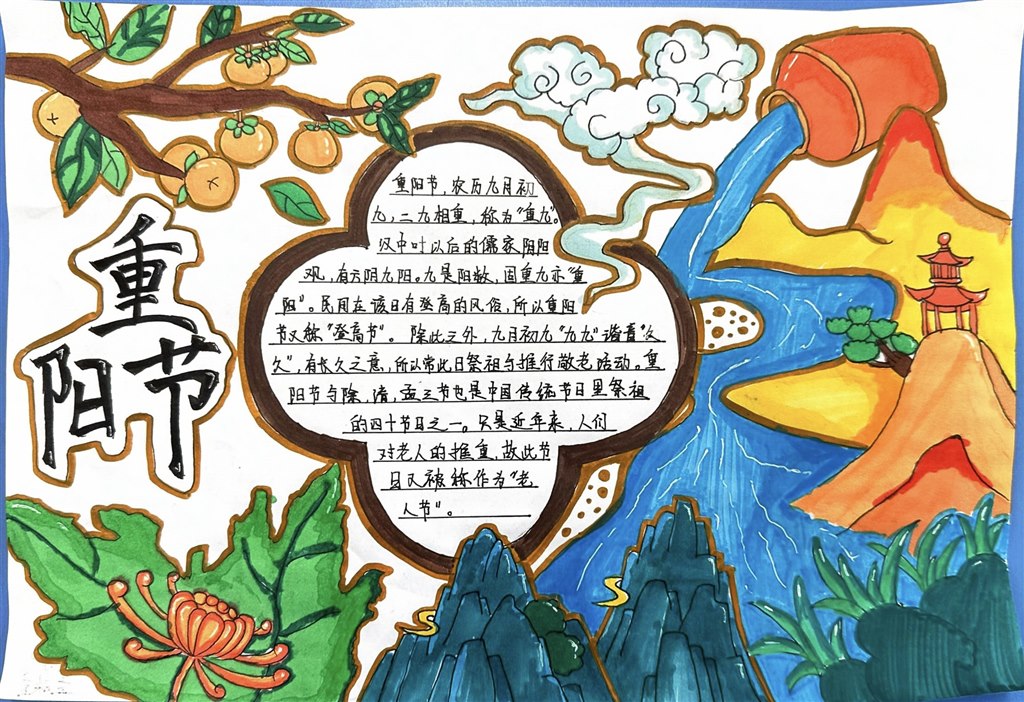 重阳节
重阳节，农历九月初
九，二九相重，称为“重九”。
汉中叶以后的儒家阴阳
观，有六阴九阳。九是阳数，固重九亦“重
阳”。民间在该日有登高的风俗，所以重阳
节又称“登高节”。除此之外，九月初九“九九”谐音“久
久”，有长久之意，所以常此日祭祖与推行敬老活动。重
阳节与除，清，孟三节也是中国传统节日里祭祖
的四十节日之一。只是近年来，人们
对老人的推重，故此节
日又被称作为“老
人节”。